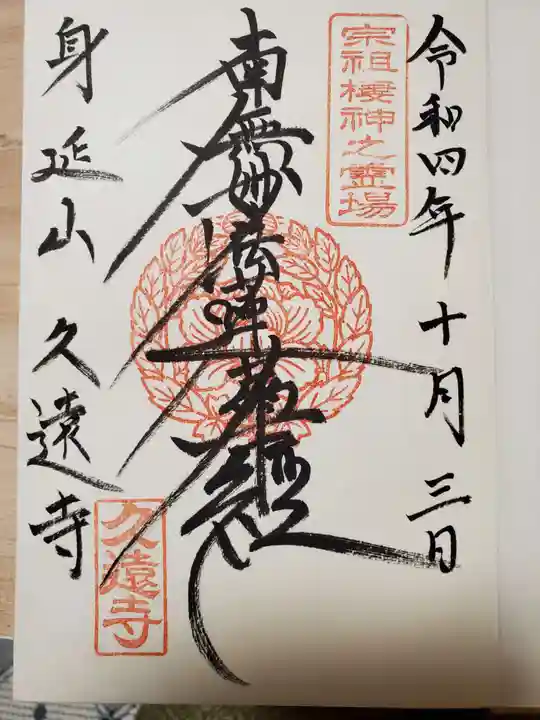 令和四年十月三日
宗祖棲神之霊場
南無妙法蓮華経
身延山 久遠寺
久遠寺